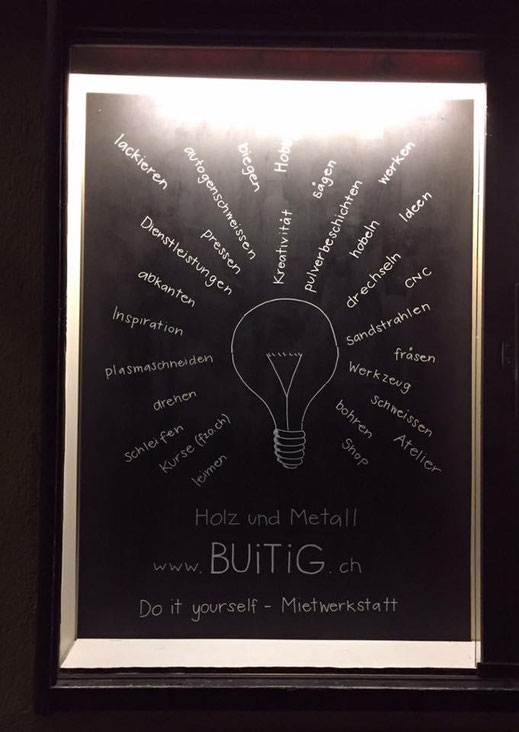 lackieren
autogenschweissen
biegen
Hobby
sägen
werken
Dienstleistungen
pressen
Kreativität
pulverbeschichten
hobeln
Ideen
abkanten
drechseln
CNC
Inspiration
Sandstrahlen
plasmaschneiden
fräsen
Werkzeug
drehen
schweissen
schleifen
bohren
Atelier
Kurse (fzo.ch)
Shop
leimen
Holz und Metall
www.BUiTiG.ch
Do it yourself - Mietwerkstatt